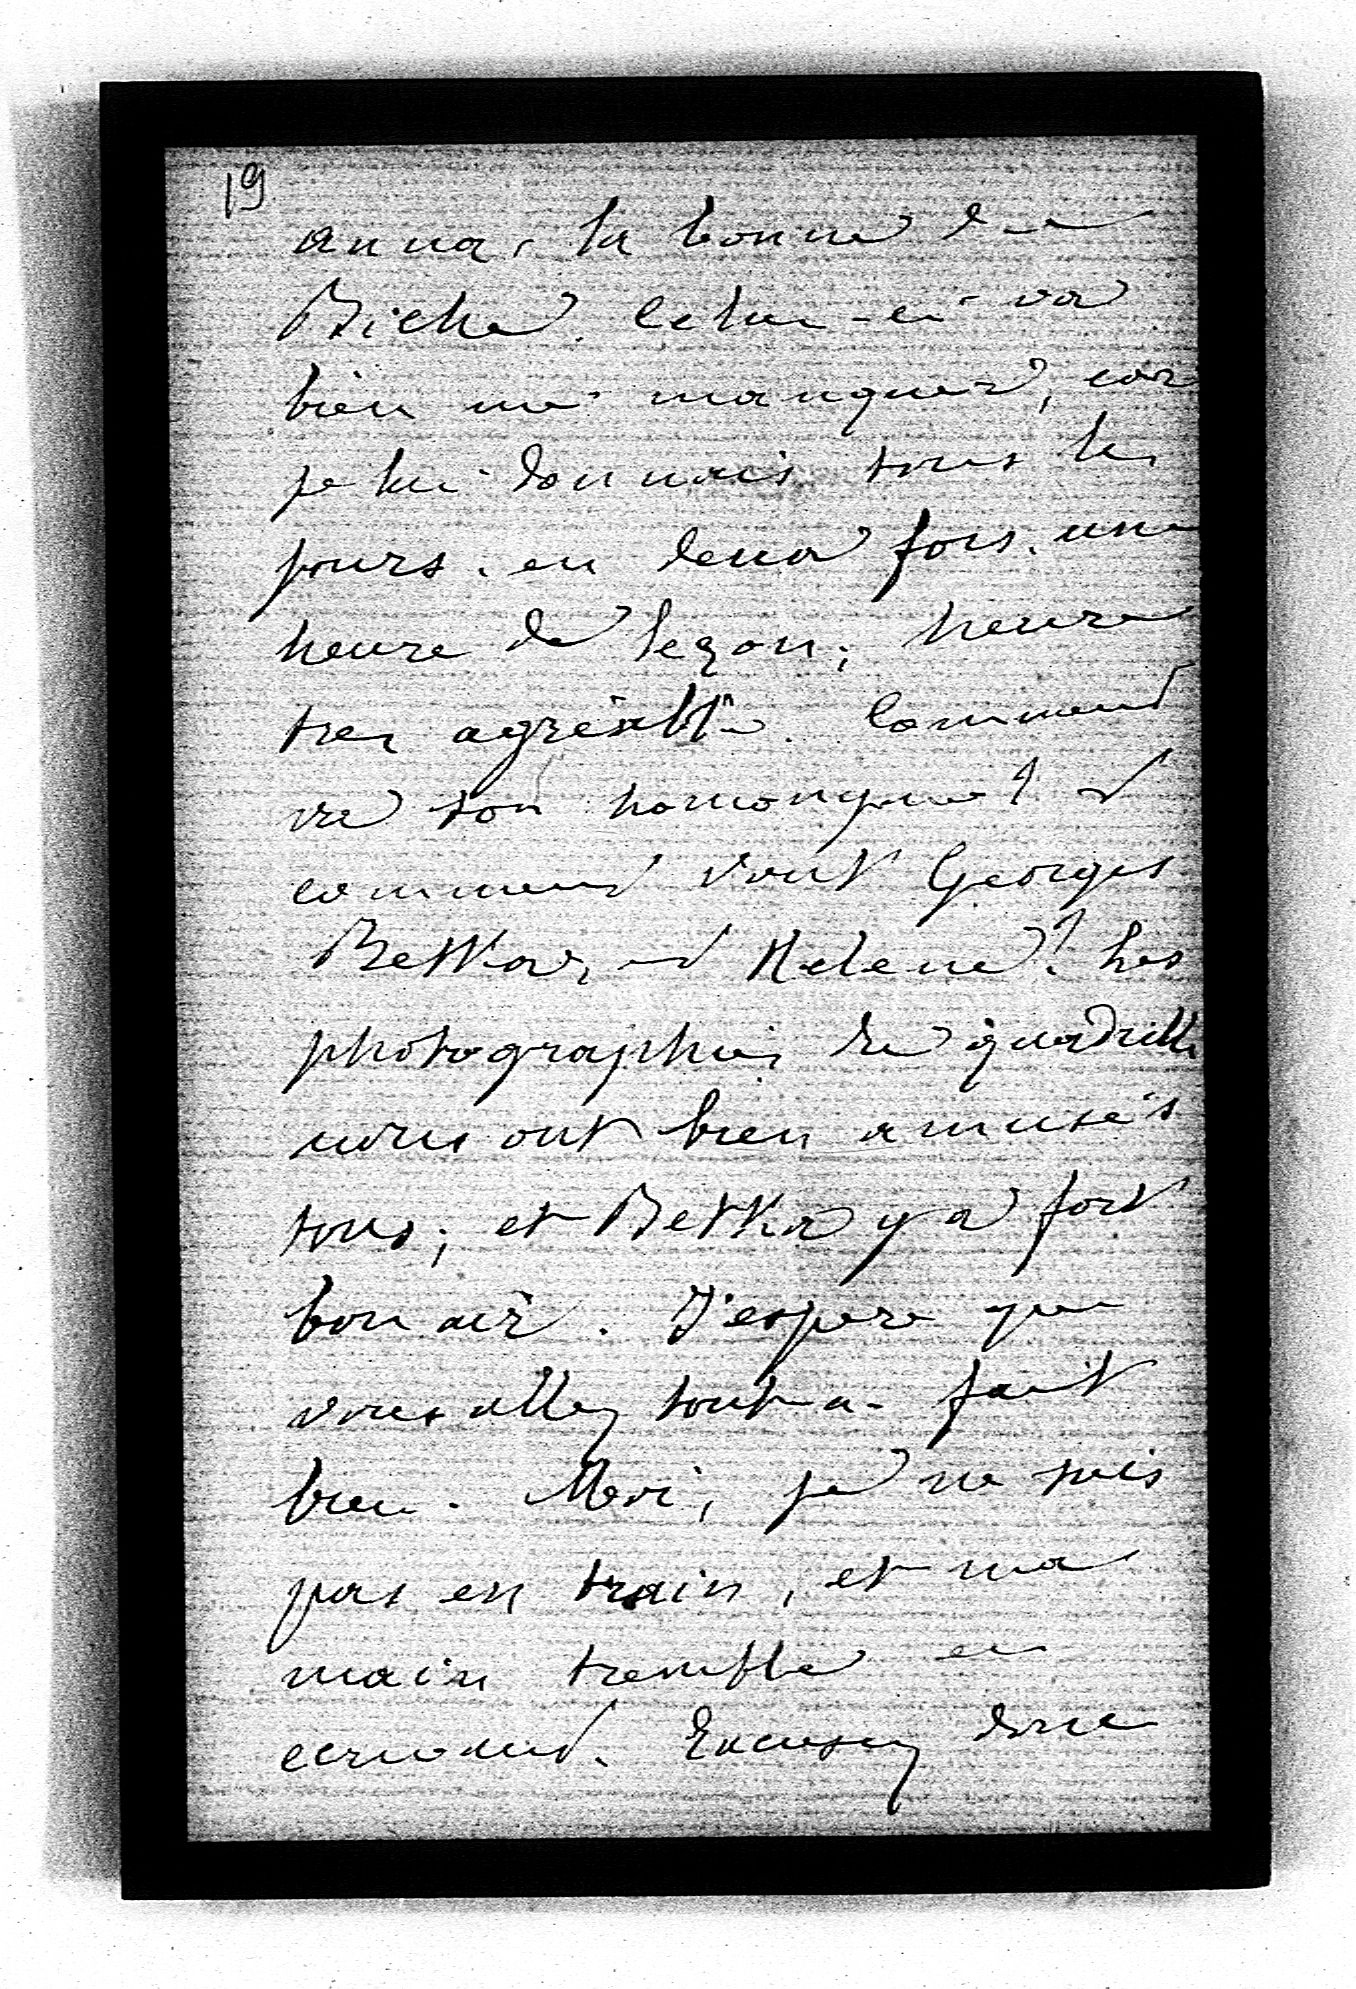 19
anna, la bonne de
Biche. Celui-ci va
bien me manquer, car
je lui donnais tous les
jours, en deux fois, une
heure de leçon; heure
tres agréable. Comment
va son homonyme? et
comment vont Georges
Betka, et Helene? Les
photographies du quadrille
nous ont bien amusés
tous; et Betka y a fort
bon air. J'espere que
vous allez tout-a-fait
bien. Moi, je ne suis
pas en train, et ma
main tremble en
ecrivant. Excusez donc